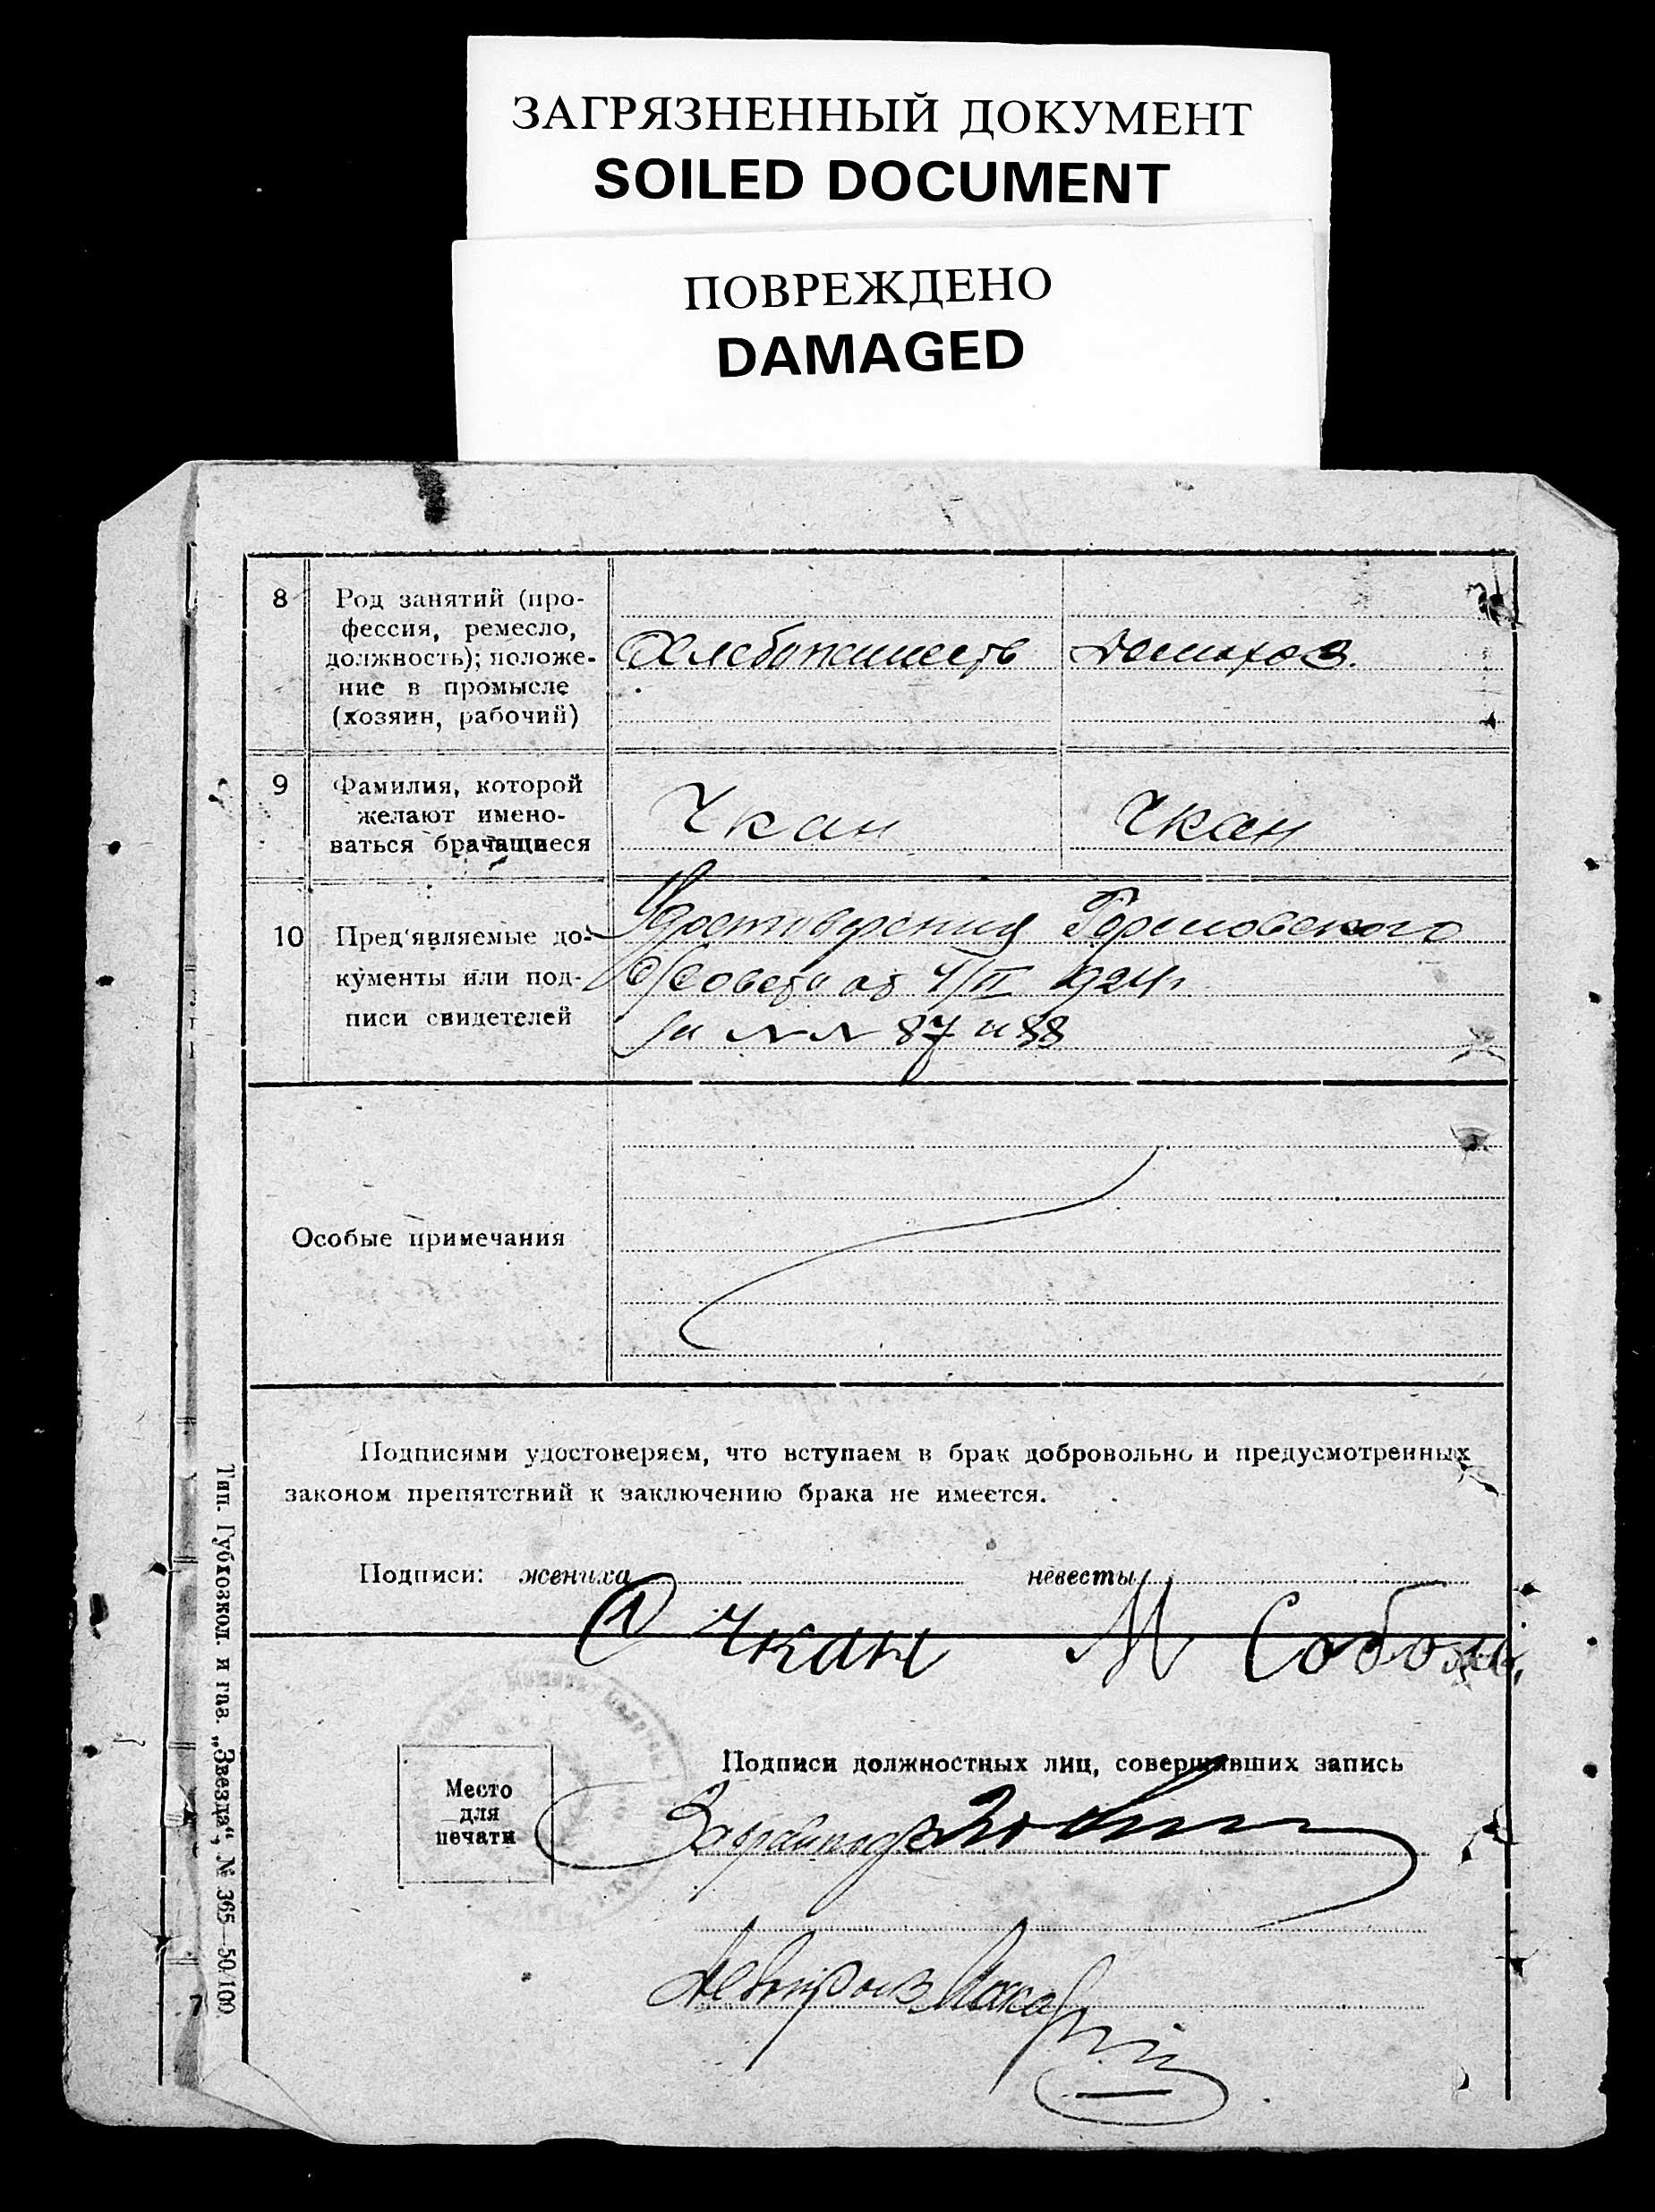 ЗАГРЯЗНЕННЫЙ ДОКУМЕНТ
SOILED DOCUMENT
ПОВРЕЖДЕНО
DAMAGED
8
Род занятий (про-
фессия, ремесло,
должность); положе-
ние в промысле
(хозяин, рабочий)
Хлебопашеств
Домахоз.
9
Фамилия, которой
желают имено-
ваться брачащиеся
Чкан
Чкан
10
Пред'являемые до-
кументы или под-
писи свидетелей
Удостоверения
С/Совета от 4/II 924г
за NN 87 и 88
Особые примечания
Подписями удостоверяем, что вступаем в брак добровольно и предусмотренных
законом препятствий к заключению брака не имеется.
Подписи: жениха
невесты
Чкан
М Собол
Подписи должностных лиц, совершивших запись
Место
для
печати
Тип. Губкозкол. и газ. „Звезда“, № 365—50/100
7